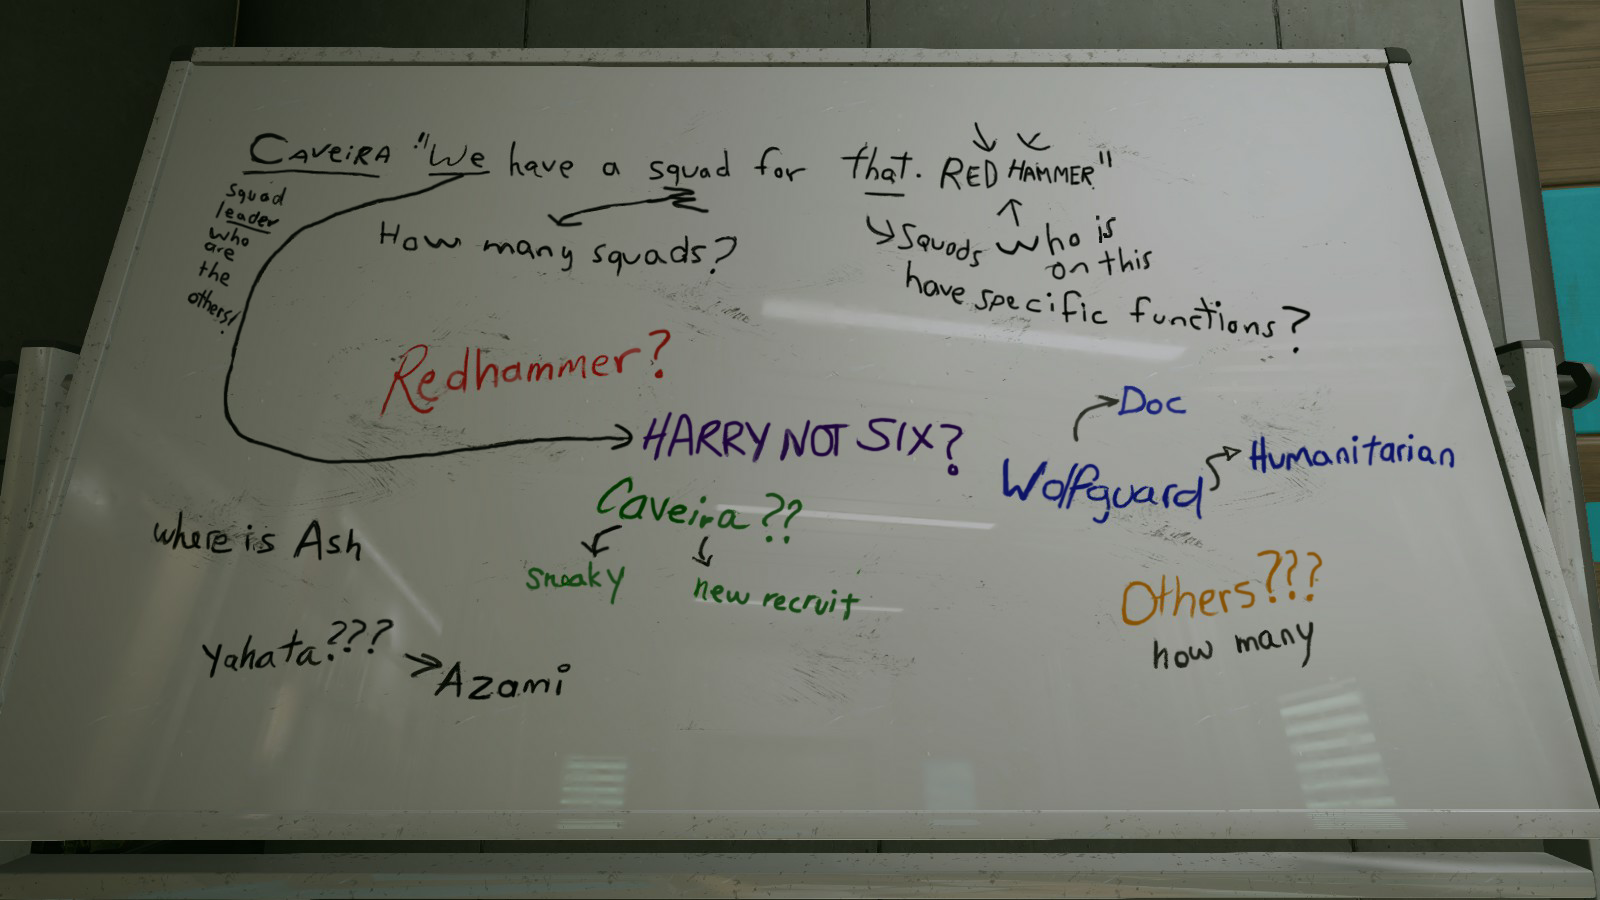 CAVEIRA "We have a squad for that. RED HAMMER"
squad
leader
who
are
the
others!
How many squads?
Squads
have specific functions?
who is
on this
Redhammer?
HARRY NOT SIX?
Caveira??
sneaky
new recruit
Doc
Wolfguard
Humanitarian
where is Ash
Yahata???
Azami
Others???
how many